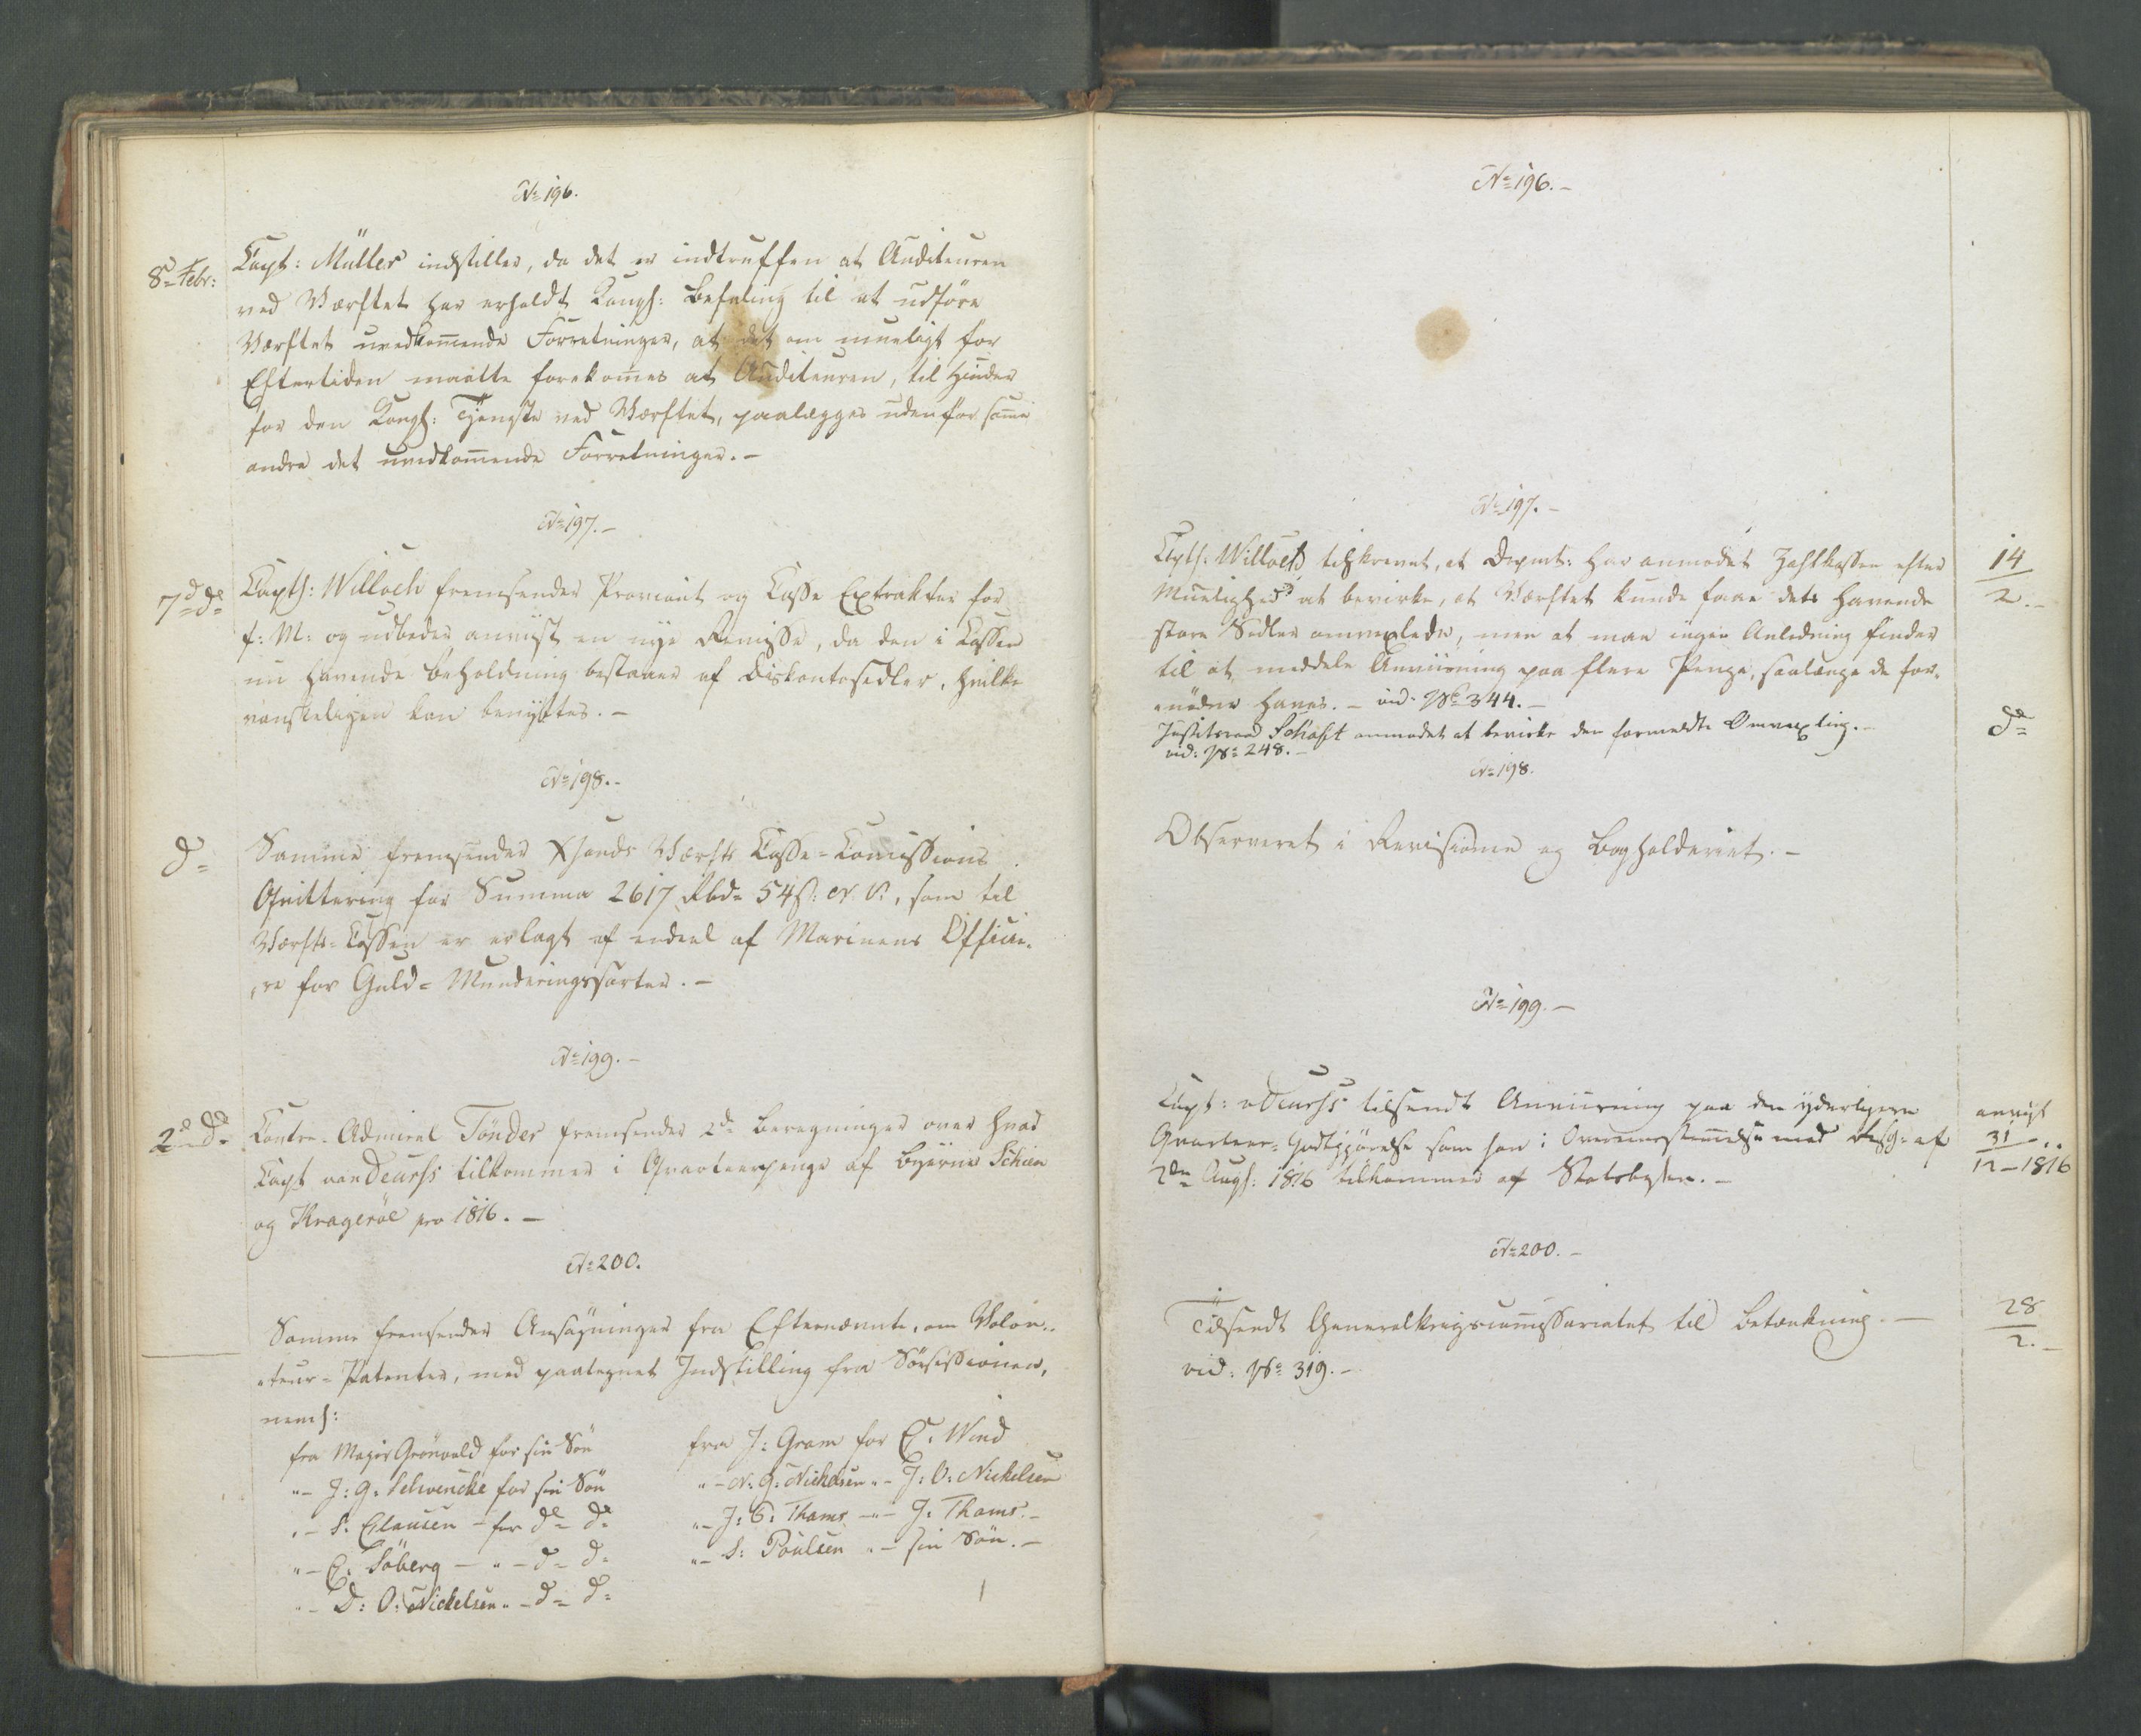 No 196.
8de Febr: Capt: Müller indstiller, da det er indtruffen at Auditeuren
ved Værftet har erholdt Kongl: Befaling til at udføre
Værftet uvedkom̅ende Forretninger, at det om mueligt for
Eftertiden maatte forekom̅es at Auditeuren, til Hinder
for den Kongl: Tjeneste ved Værftet, paalægges udenfor sam̅e
andre det uvedkom̅ende Forretninger.-
No 197.-
7de do Captl: Willoch fremsender Proviant og Casse Extrakter for
f: M: og udbeder anviist en nye Remisse, da den i Cassen
nu havende Beholdning bestaaer af Diskontosedler, hvilke
vanskeligen kan benyttes.-
No 198.-
do Samme fremsender Xsands Værfts Casse-Com̅issions
Qvittering for Summa 2617 Rbd= 54 s: N. V:, som til
Værfts-Cassen er erlagt af endeel af Marinens Officie-
re for Guld-Munderingssorter.-
No 199.-
2de do Contre-Admiral Tönder fremsender 2de Beregninger over hvad
Capt van Deurss tilkommer i Qvarteerpenge af Byerne Schien
og Kragerøe pro 1816.-
No 200.
Samme fremsender Ansøgninger fra Efternævnte, om Volon-
teur-Patenter, med paategnet Indstilling fra Sösessionen,
neml:
fra Major Grönvold for sin Sön
"- J: G: Schwencke for sin Sön
"- S: Clausen - for do do
"- C: Söberg - " - do do
"- D: O: Nickelsen " - do do
fra J: Gram for C: Wind
"- N: G: Nickelsen " - J: O: Nickelsen
"- J: C: Thams - " - J: Thams.-
"- S: Poulsen " - sin Sön.-
No 196.-
No 197.-
Captl: Willoch tilskrevet, at Depmt: har anmodet Zahlkassen efter
Muelighed at bevirke, at Værftet kunde faae dets havende
store Sedler omvexlede, men at man ingen Anledning finder
til at meddele Anviisning paa flere Penge, saalænge de for-
enödne haves.- vid: No 344.-
14/2.-
Justitsraad Schaft anmodet at bevirke den formeldte Omvexling.-
vid: No 248.-
do
No 198.
Observeret i Revisionen og Bogholderiet.-
No 199.-
Capt: v Deurss tilsendt Anviisning paa den yderligere
Qvarteer-Godtgjörelse som han i Overeensstem̅else med Resol: af
2den Augs: 1816 tilkommer af Statskassen.-
anviist
31/12-1816
No 200.-
Tilsendt Generalkrigscom̅issariatet til Betænkning.-
vid: No 319.-
28/2.-